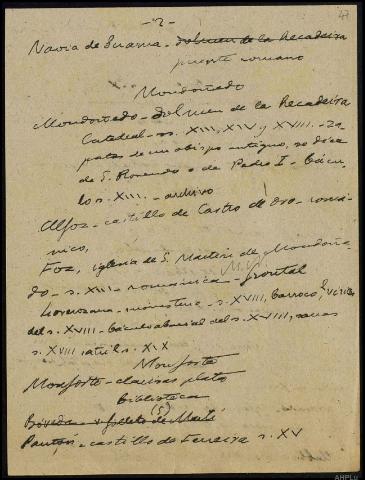 - 2 -
47
Navia de Suarna - dolmen de la Recadeira
puente romano
Mondoñedo
Mondoñedo - dolmen de la Recadeira
Catedral - ss. XIII, XIV y XVIII. - za-
patas de un obispo antiguo, se dice
de S. Rosendo o de Pedro I - bácu-
los s. XIII. - archivo
Alfoz - castillo de Castro de Oro - romá-
nico,
Foz, iglesia de S. Martín de Mondoñe-
do - s. XII - románica - frontal
Lorenzana - monasterio - s. XVIII, barroco,
del s. XVIII - báculo abacial del s. XVIII,
s. XVIII atril s. XIX
Monforte
Monforte - clarisas plata
biblioteca
(S)
Bóveda -
Pantón - castillo de Ferreira s. XV
AHPLu